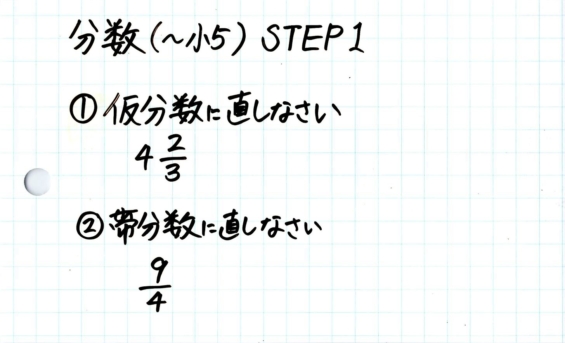 分数(〜小5) STEP1
① 仮分数に直しなさい
4 2/3
② 帯分数に直しなさい
9/4